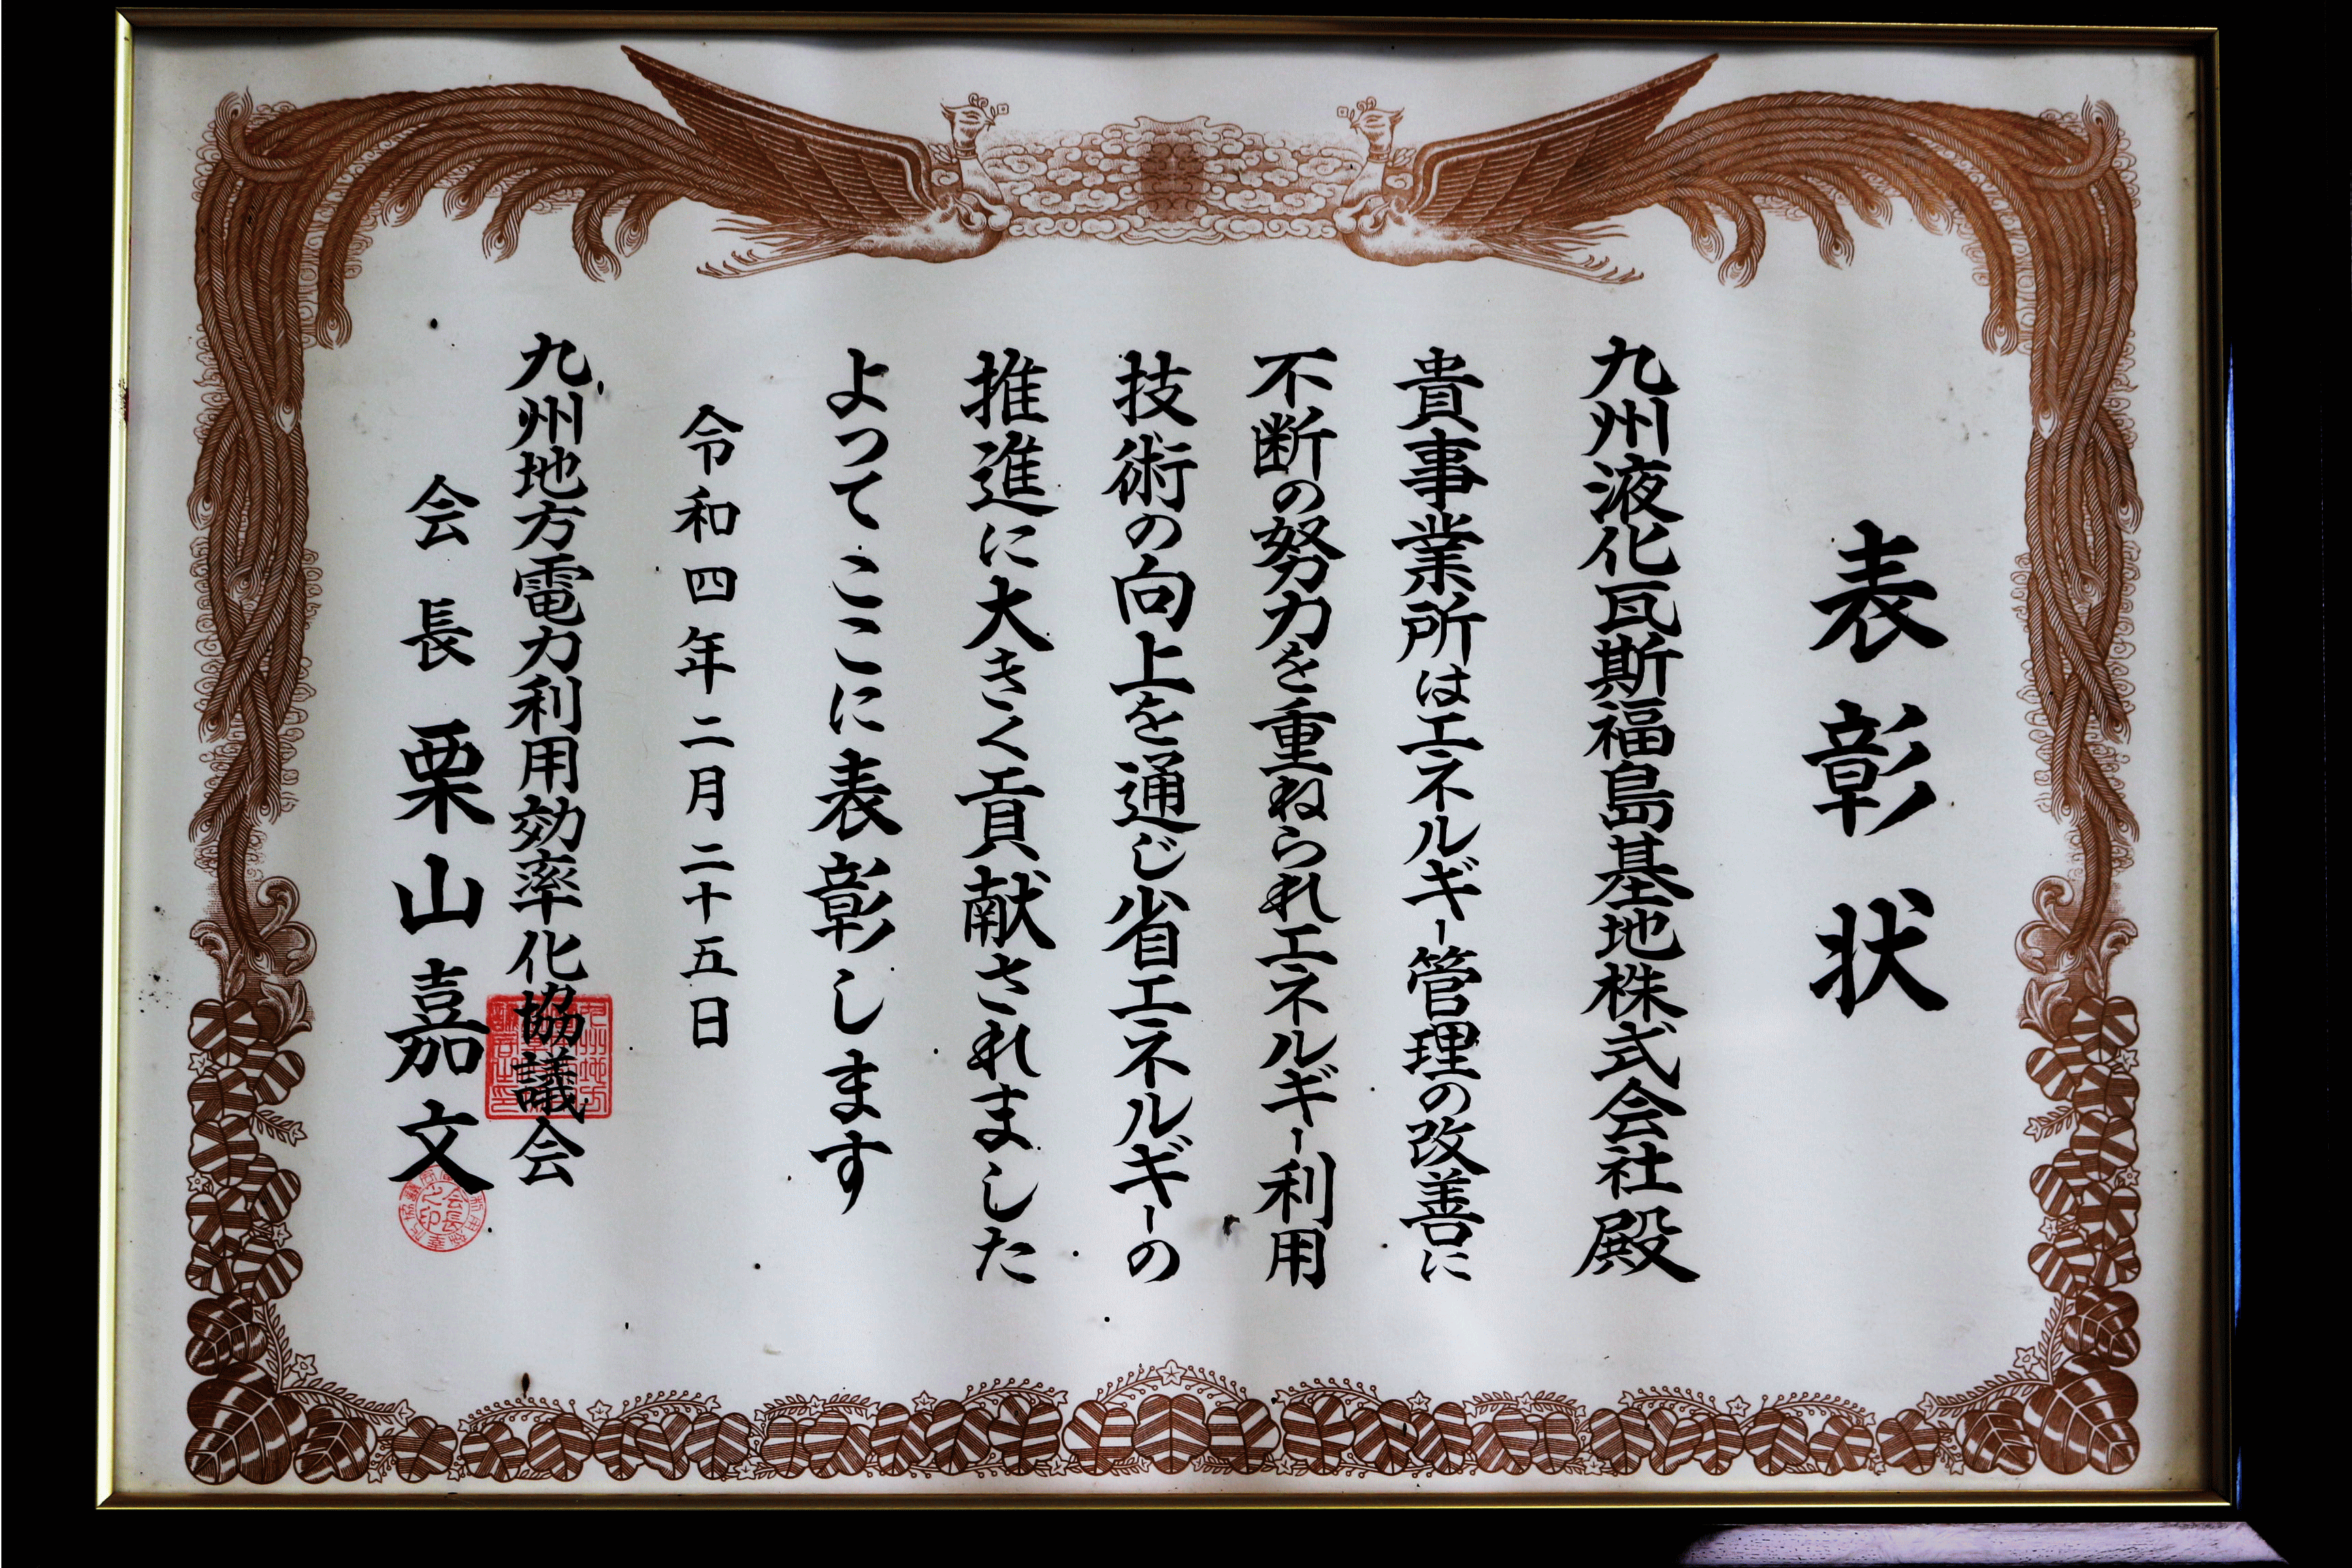 表彰状
九州液化瓦斯福島基地株式会社殿
貴事業所はエネルギー管理の改善に
不断の努力を重ねられエネルギー利用
技術の向上を通じ省エネルギーの
推進に大きく貢献されました
よつてここに表彰します
令和四年二月二十五日
九州地方電力利用効率化協議会
会長 栗山嘉文